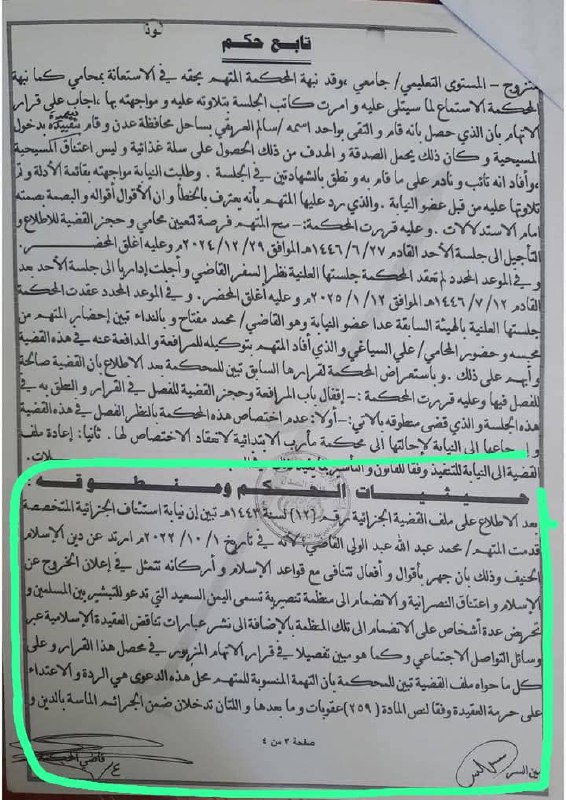 تابع حكم
متزوج – المستوى التعليمي/ جامعي ،وقد نبهة المحكمة المتهم بحقه في الاستعانة بمحامي كما نبهة
المحكمة الاستماع لما سيتلى عليه و امرت كاتب الجلسة بتلاوته عليه و مواجهته بها ،اجاب على قرار
الاتهام بان الذي حصل بانه قام و التقى بواحد اسمه /سالم العرفي بساحل محافظة عدن و قام بدخول
المسيحية و كان ذلك بمحل الصدفة و الهدف من ذلك الحصول على سلة غذائية و ليس اعتناق المسيحية
،وأفاد انه تائب و نادم على ما قام به و نطق بالشهادتين في الجلسة . وطلبت النيابة مواجهته بقائمة الأدلة و
تلاوتها عليه من قبل عضو النيابة .والذي رد عليها المتهم بأنه يعترف بالخطأ و ان الأقوال أقواله و البصمة بصمته
امام الاستدلالات . وعليه قررت المحكمة:– منح المتهم فرصة لتعيين محامي و حجز القضية للاطلاع و
التأجيل الى جلسة الأحد القادم ١٤٤٦/٦/٢٧هـ الموافق ٢٠٢٤/١٢/٢٩م وعليه اغلق المحضر.
و في الموعد المحدد لم تعقد المحكمة جلستها العلنية نظرا لسفر القاضي و أجلت إداريا الى جلسة الأحد بعد
القادم ١٤٤٦/٧/١٢هـ الموافق ٢٠٢٥/١/١٢م و عليه أغلق المحضر. و في الموعد المحدد عقدت المحكمة
جلستها العلنية بالهيئة السابقة عدا عضو النيابة وهو القاضي/ محمد مفتاح و بالنداء تبين إحضار المتهم من
محبسه و حضور المحامي/ علي السياغي و الذي أفاد المتهم بتوكيله للمرافعة و المدافعة عنه في هذه القضية
و على ذلك . و باستعراض المحكمة لقرارها السابق تبين للمحكمة بعد الاطلاع بان القضية صالحة
للفصل فيها وعليه قررت المحكمة :– إقفال باب المرافعة وحجز القضية للفصل في القرار و النطق به في
هذه الجلسة و الذي قضى منطوقه بالاتي:–أولا: عدم اختصاص هذه المحكمة بالنظر الفصل في هذه القضية
و إرجاعها الى النيابة لإحالتها الى محكمة مأرب الابتدائية لانعقاد الاختصاص لها . ثانيا: إعادة ملف
القضية الى النيابة للتنفيذ وفقا للقانون و التأشير
حيثيات الحكم ومنطوقه
بعد الاطلاع على ملف القضية الجزائية رقم (١٢) لسنة ١٤٤٣هـ تبين إن نيابة استئناف الجزائية المتخصصة
قدمت المتهم/ محمد عبد الله عبد الولي القاضي لأنه في تاريخ ٢٠٢٢/١٠/١م ارتد عن دين الإسلام
الحنيف وذلك بان جهر بأقوال و أفعال تتنافى مع قواعد الإسلام و أركانه تتمثل في إعلان الخروج عن
الإسلام و اعتناق النصرانية و الانضمام الى منظمة تنصيرية تسمى اليمن السعيد التي تدعو للتبشير بين المسلمين و
تحريض عدة أشخاص على الانضمام الى تلك المنظمة بالإضافة الى نشر عبارات تناقض العقيدة الإسلامية عبر
وسائل التواصل الاجتماعي و كما هو مبين تفصيلا في قرار الاتهام المزبور في محصل هذا القرار و على
كل ما حواه ملف القضية تبين للمحكمة بان التهمة المنسوبة للمتهم محل هذه الدعوى هي الردة و الاعتداء
على حرمة العقيدة وفقا لنص المادة (٢٥٩)عقوبات و ما بعدها و اللتان تدخلان ضمن الجرائم الماسة بالدين و
صفحة ٣ من ٤
قاضي
أمين السر